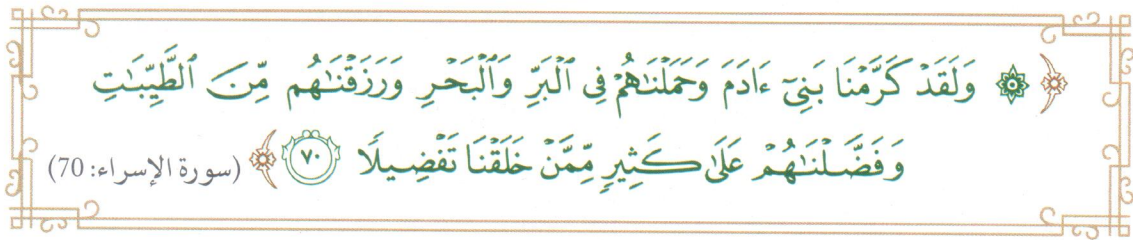 ﴿ ۞ وَلَقَدْ كَرَّمْنَا بَنِيٓ ءَادَمَ وَحَمَلْنَٰهُمْ فِي ٱلْبَرِّ وَٱلْبَحْرِ وَرَزَقْنَٰهُم مِّنَ ٱلطَّيِّبَٰتِ
وَفَضَّلْنَٰهُمْ عَلَىٰ كَثِيرٖ مِّمَّنْ خَلَقْنَا تَفْضِيلٗا ٧٠ ﴾ (سورة الإسراء: 70)